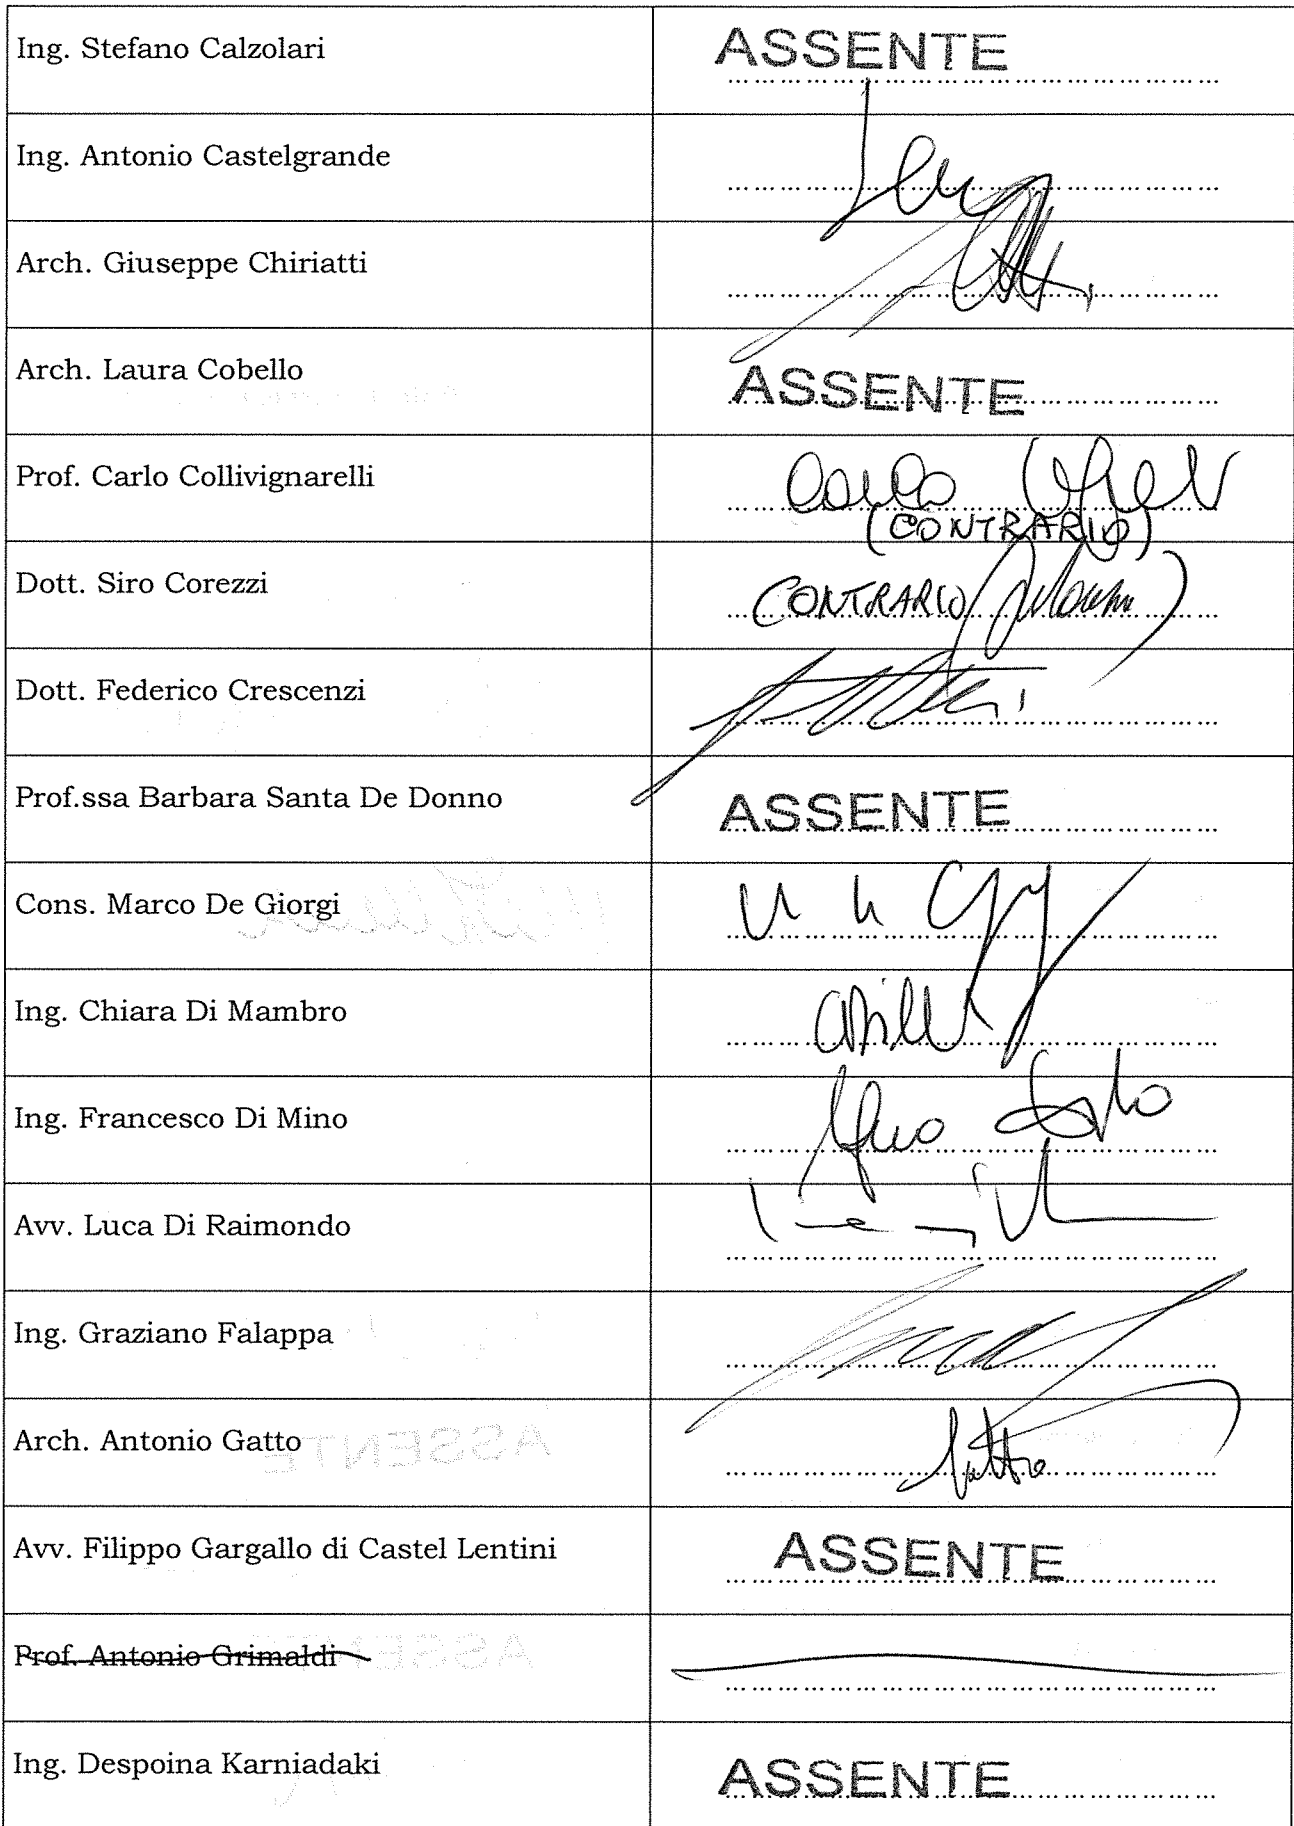 Ing. Stefano Calzolari ASSENTE
Ing. Antonio Castelgrande
Arch. Giuseppe Chiriatti
Arch. Laura Cobello ASSENTE
Prof. Carlo Collivignarelli Carlo
(CONTRARIO)
Dott. Siro Corezzi CONTRARIO
Dott. Federico Crescenzi
Prof.ssa Barbara Santa De Donno ASSENTE
Cons. Marco De Giorgi
Ing. Chiara Di Mambro
Ing. Francesco Di Mino
Avv. Luca Di Raimondo
Ing. Graziano Falappa
Arch. Antonio Gatto Gatto
Avv. Filippo Gargallo di Castel Lentini ASSENTE
Prof. Antonio Grimaldi
Ing. Despoina Karniadaki ASSENTE